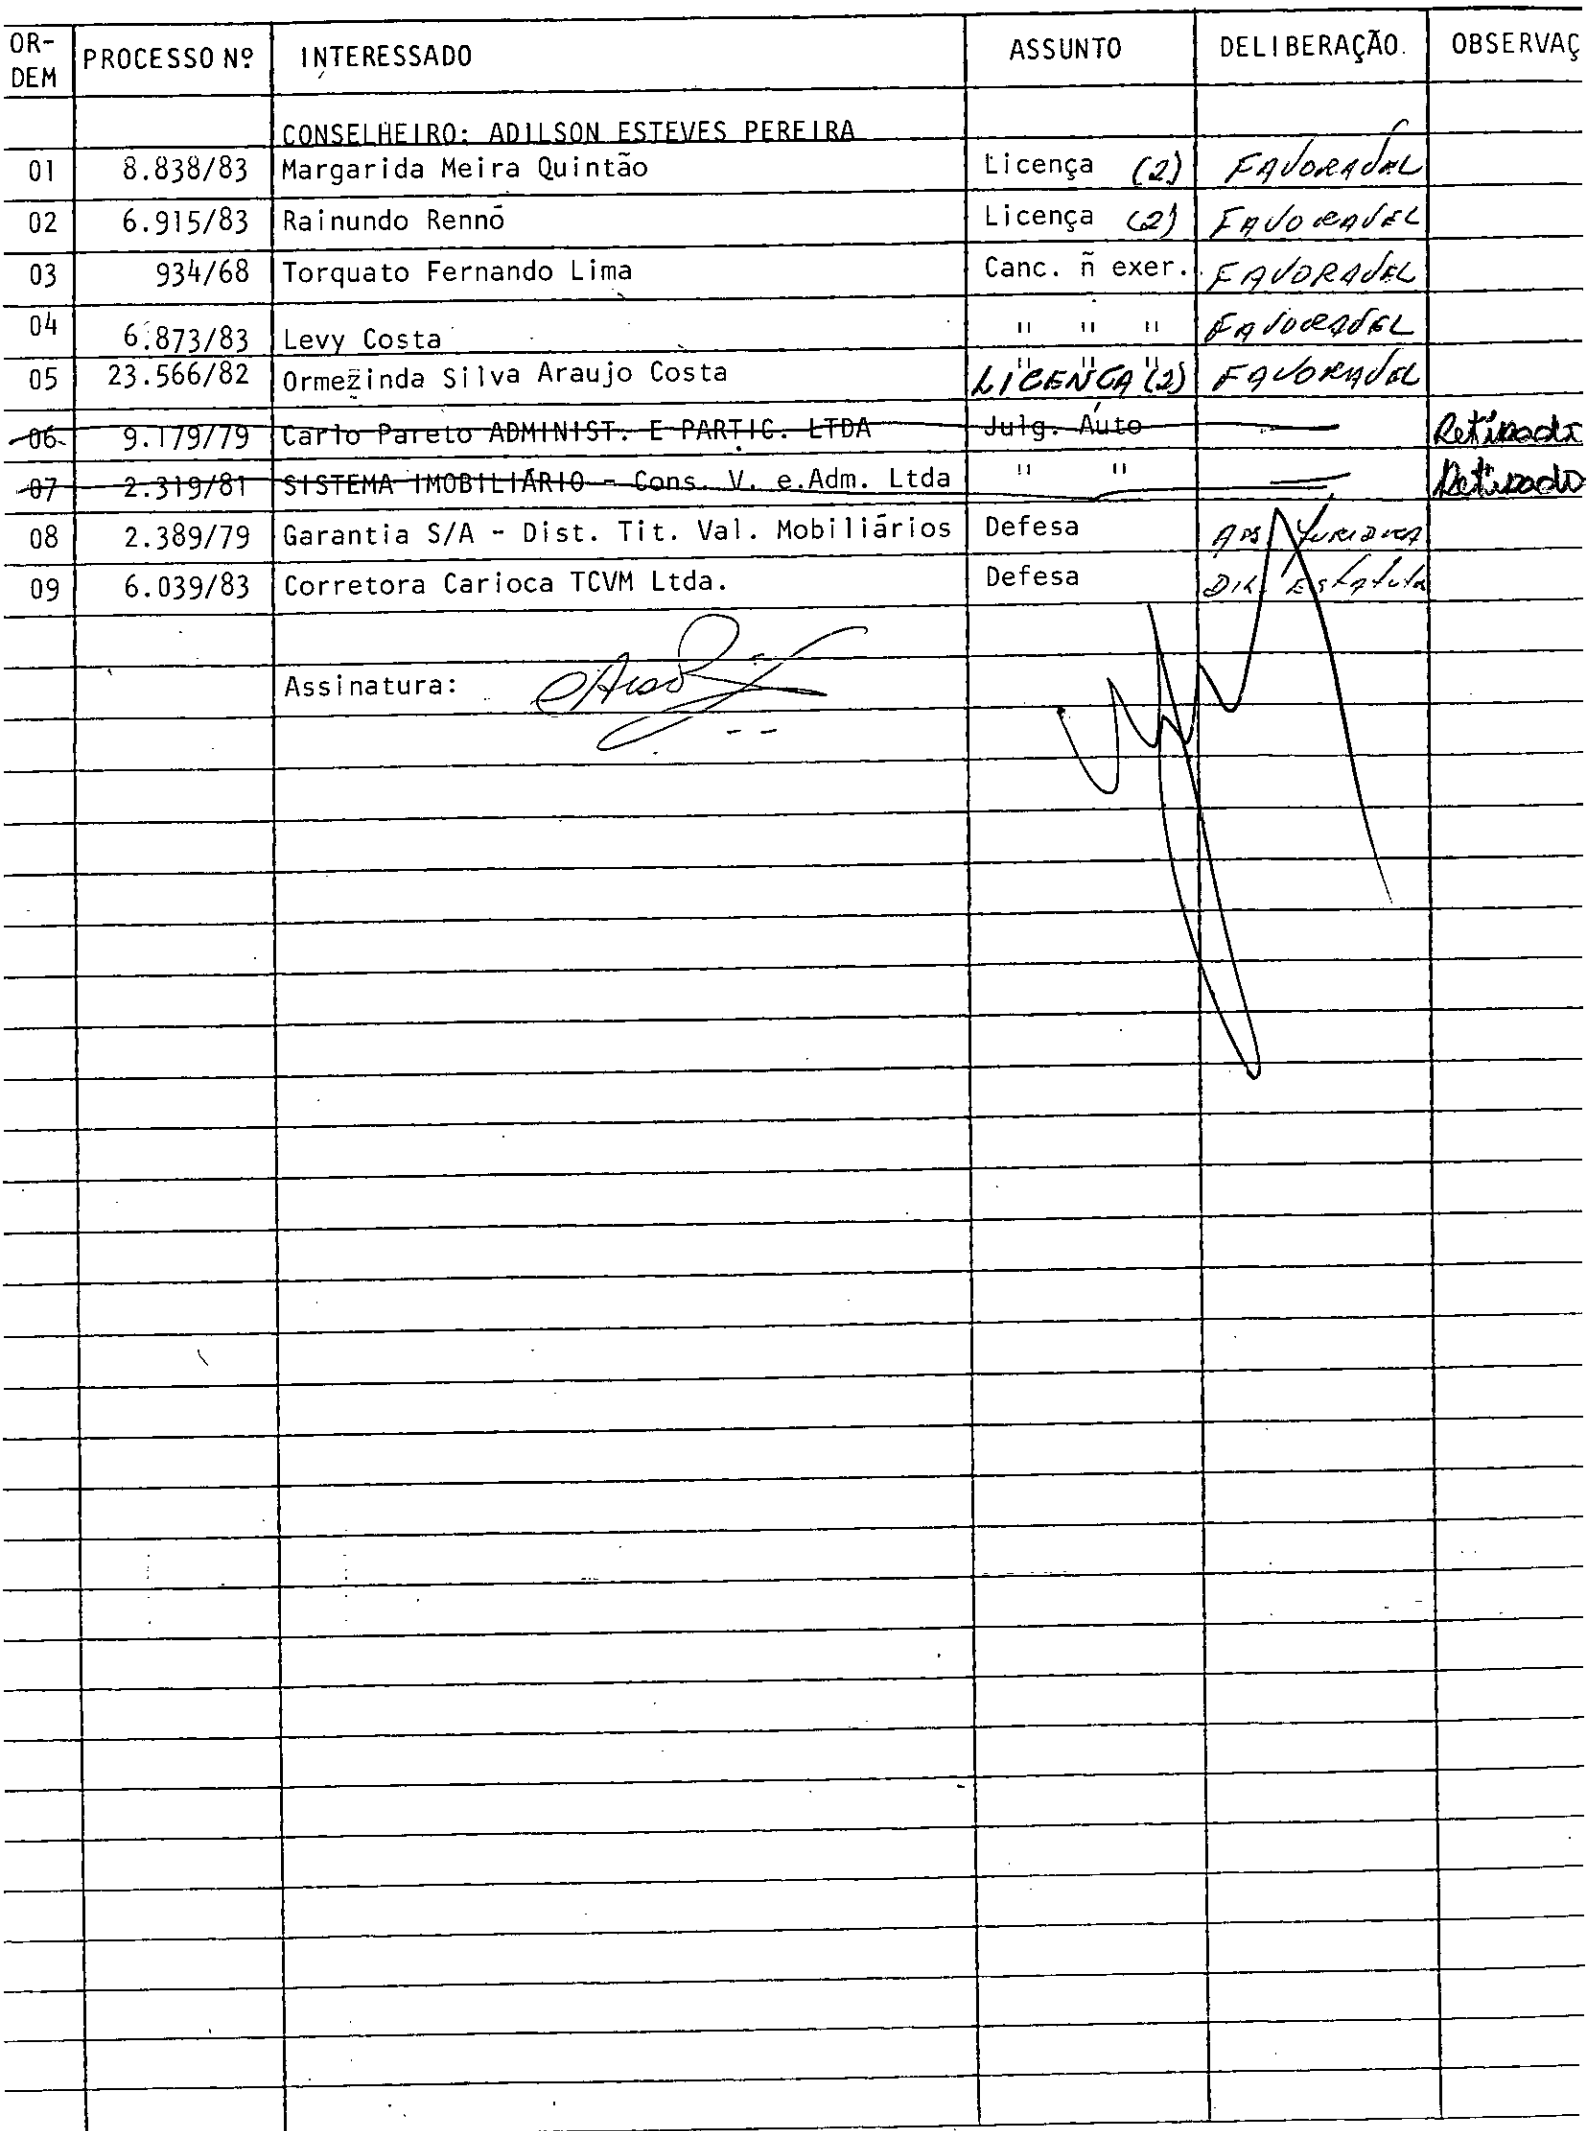 OR-DEM PROCESSO Nº INTERESSADO ASSUNTO DELIBERAÇÃO. OBSERVAÇ
CONSELHEIRO: ADILSON ESTEVES PEREIRA
01 8.838/83 Margarida Meira Quintão Licença (2) FAVORAVEL
02 6.915/83 Rainundo Rennó Licença (2) FAVORAVEL
03 934/68 Torquato Fernando Lima Canc. ñ exer. FAVORAVEL
04 6.873/83 Levy Costa " " " FAVORAVEL
05 23.566/82 Ormezinda Silva Araujo Costa " " " LICENÇA (2) FAVORAVEL
06 9.179/79 Carlo Pareto ADMINIST. E PARTIC. LTDA Julg. Auto — Retirado
07 2.319/81 SISTEMA IMOBILIÁRIO - Cons. V. e.Adm. Ltda " " — Retirado
08 2.389/79 Garantia S/A - Dist. Tit. Val. Mobiliários Defesa
09 6.039/83 Corretora Carioca TCVM Ltda. Defesa
Assinatura: